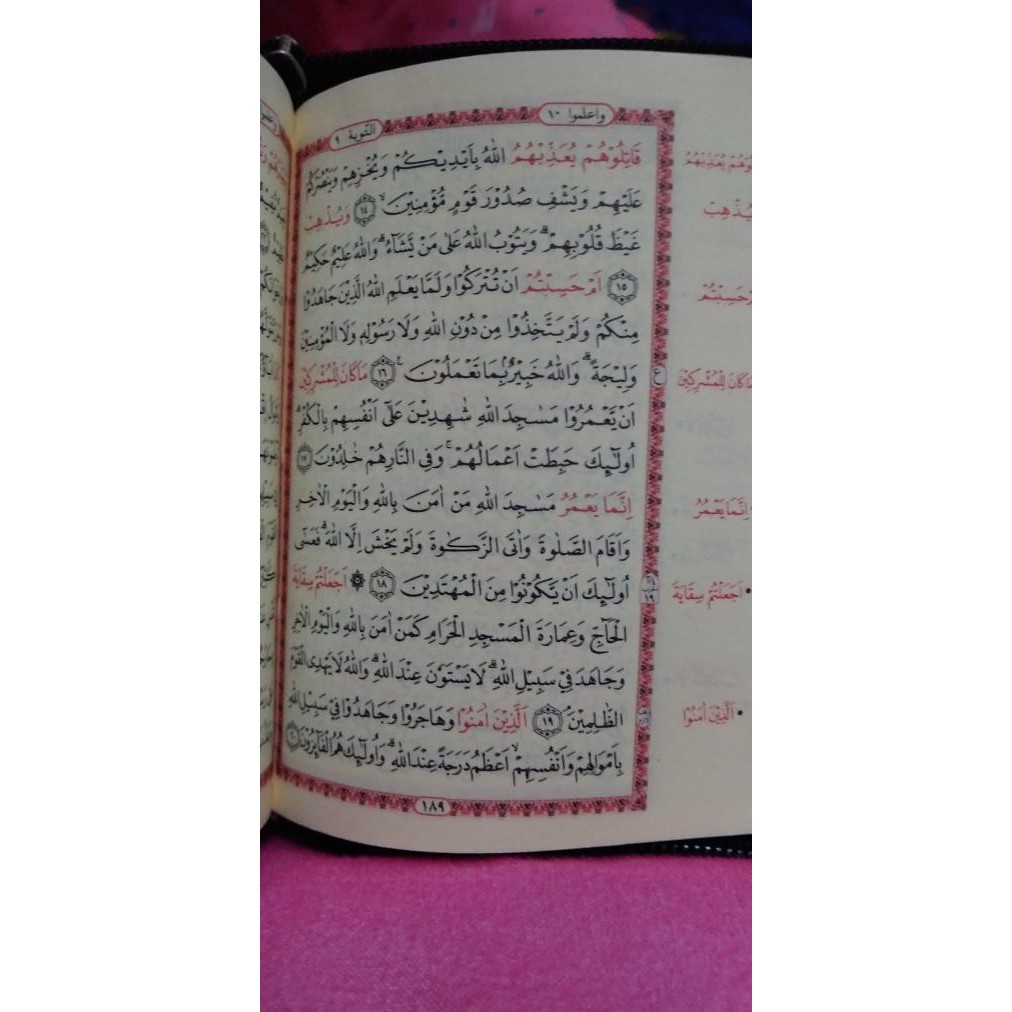 واعلموا ١٠
التوبة ٩
قَاتِلُوْهُمْ يُعَذِّبْهُمُ اللّٰهُ بِاَيْدِيْكُمْ وَيُخْزِهِمْ وَيَنْصُرْكُمْ
عَلَيْهِمْ وَيَشْفِ صُدُوْرَ قَوْمٍ مُّؤْمِنِيْنَۙ ١٤ وَيُذْهِبْ
غَيْظَ قُلُوْبِهِمْۗ وَيَتُوْبُ اللّٰهُ عَلٰى مَنْ يَّشَاۤءُۗ وَاللّٰهُ عَلِيْمٌ حَكِيْمٌ
١٥ اَمْ حَسِبْتُمْ اَنْ تُتْرَكُوْا وَلَمَّا يَعْلَمِ اللّٰهُ الَّذِيْنَ جَاهَدُوْا
مِنْكُمْ وَلَمْ يَتَّخِذُوْا مِنْ دُوْنِ اللّٰهِ وَلَا رَسُوْلِهٖ وَلَا الْمُؤْمِنِيْنَ
وَلِيْجَةًۗ وَاللّٰهُ خَبِيْرٌۢ بِمَا تَعْمَلُوْنَ ࣖ ١٦ مَا كَانَ لِلْمُشْرِكِيْنَ
اَنْ يَّعْمُرُوْا مَسٰجِدَ اللّٰهِ شٰهِدِيْنَ عَلٰٓى اَنْفُسِهِمْ بِالْكُفْرِۗ
اُولٰۤىِٕكَ حَبِطَتْ اَعْمَالُهُمْۚ وَفِى النَّارِ هُمْ خٰلِدُوْنَ ١٧
اِنَّمَا يَعْمُرُ مَسٰجِدَ اللّٰهِ مَنْ اٰمَنَ بِاللّٰهِ وَالْيَوْمِ الْاٰخِرِ
وَاَقَامَ الصَّلٰوةَ وَاٰتَى الزَّكٰوةَ وَلَمْ يَخْشَ اِلَّا اللّٰهَۗ فَعَسٰٓى
اُولٰۤىِٕكَ اَنْ يَّكُوْنُوْا مِنَ الْمُهْتَدِيْنَ ١٨ ۞ اَجَعَلْتُمْ سِقَايَةَ
الْحَاۤجِّ وَعِمَارَةَ الْمَسْجِدِ الْحَرَامِ كَمَنْ اٰمَنَ بِاللّٰهِ وَالْيَوْمِ الْاٰخِرِ
وَجَاهَدَ فِيْ سَبِيْلِ اللّٰهِۗ لَا يَسْتَوٗنَ عِنْدَ اللّٰهِۗ وَاللّٰهُ لَا يَهْدِى الْقَوْمَ
الظّٰلِمِيْنَۘ ١٩ اَلَّذِيْنَ اٰمَنُوْا وَهَاجَرُوْا وَجَاهَدُوْا فِيْ سَبِيْلِ اللّٰهِ
بِاَمْوَالِهِمْ وَاَنْفُسِهِمْۙ اَعْظَمُ دَرَجَةً عِنْدَ اللّٰهِۗ وَاُولٰۤىِٕكَ هُمُ الْفَاۤىِٕزُوْنَ
١٨٩
يُعَذِّبْهُمُ
حَسِبْتُمْ
ع
مَا كَانَ لِلْمُشْرِكِيْنَ
اِنَّمَا يَعْمُرُ
١٩
اَجَعَلْتُمْ سِقَايَةَ
اَلَّذِيْنَ اٰمَنُوْا